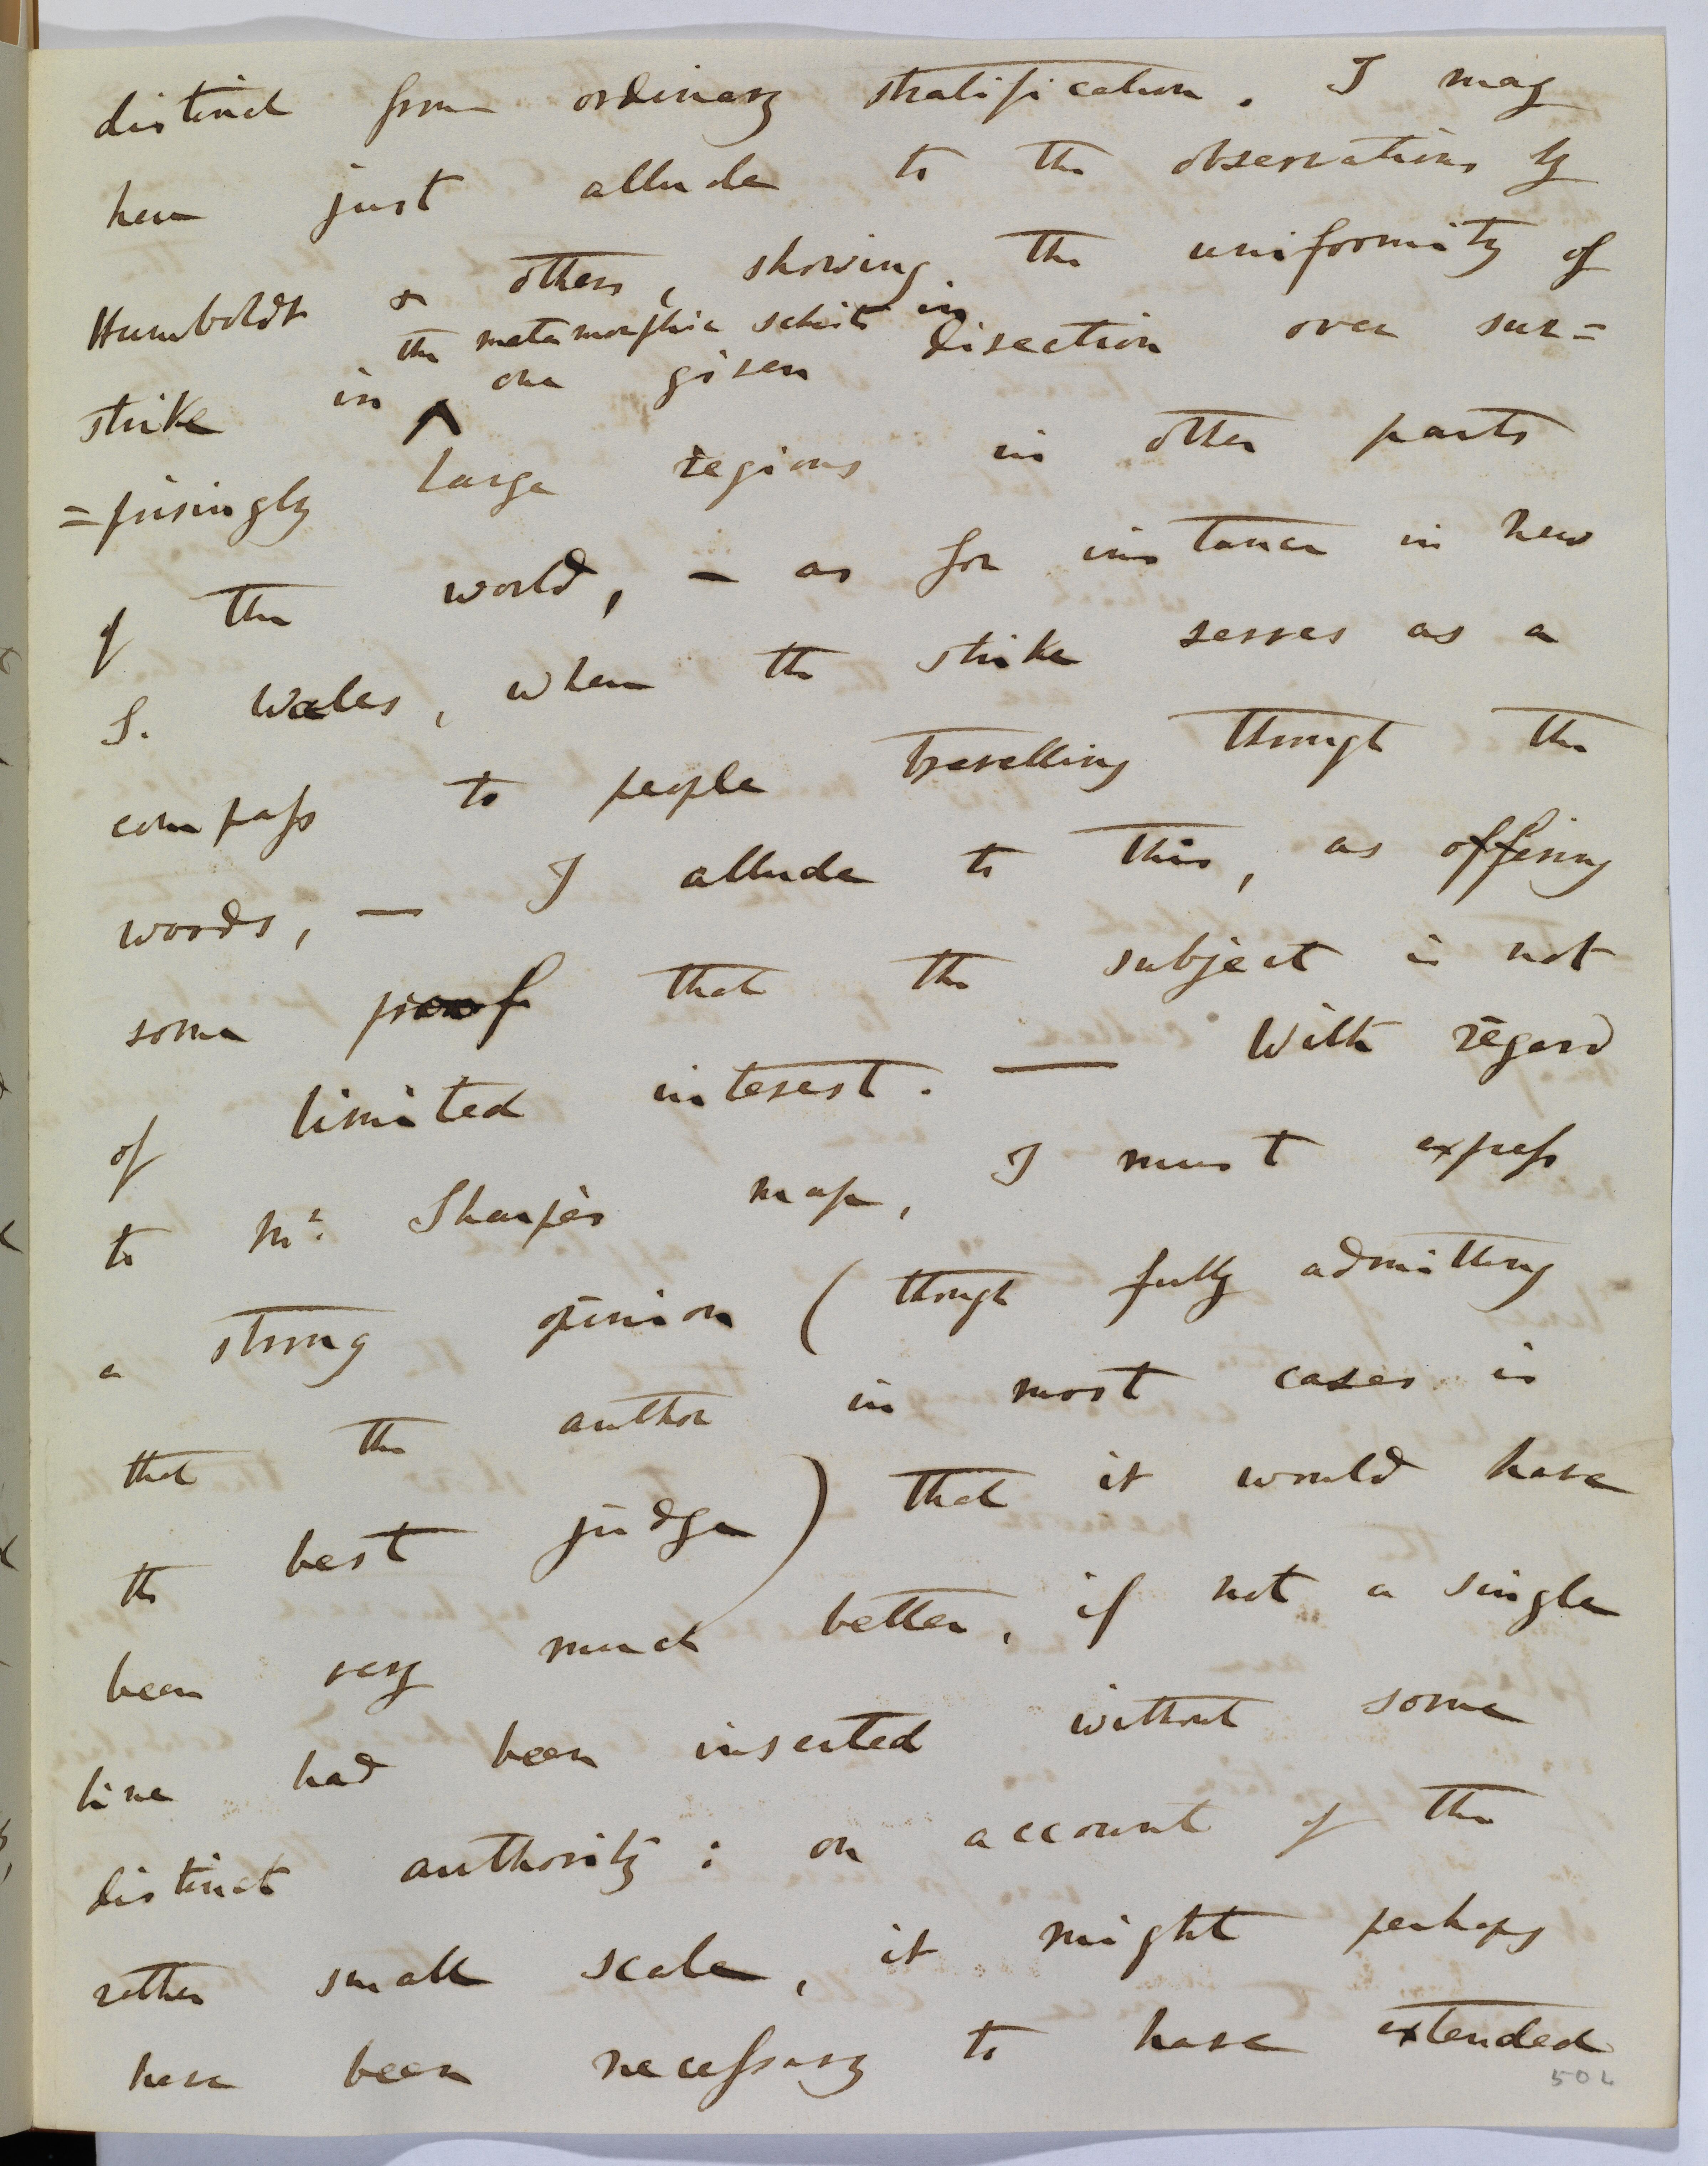 distinct from ordinary stratification. I may
here just allude to the observations by
Humboldt & others, showing the uniformity of
the metamorphic schists in
strike in one given direction over sur=
=prisingly large regions in other parts
of the world, — as for instance in New
S. Wales, where the strike serves as a
compass to people travelling through the
woods, — I allude to this, as offering
some proof that the subject is not
of limited interest. — With regard
to Mr. Sharpe's map, I must express
a strong opinion (though fully admitting
that the author in most cases is
the best judge) that it would have
been very much better, if not a single
line had been inserted without some
distinct authority: on account of the
rather small scale, it might perhaps
have been necessary to have extended
502